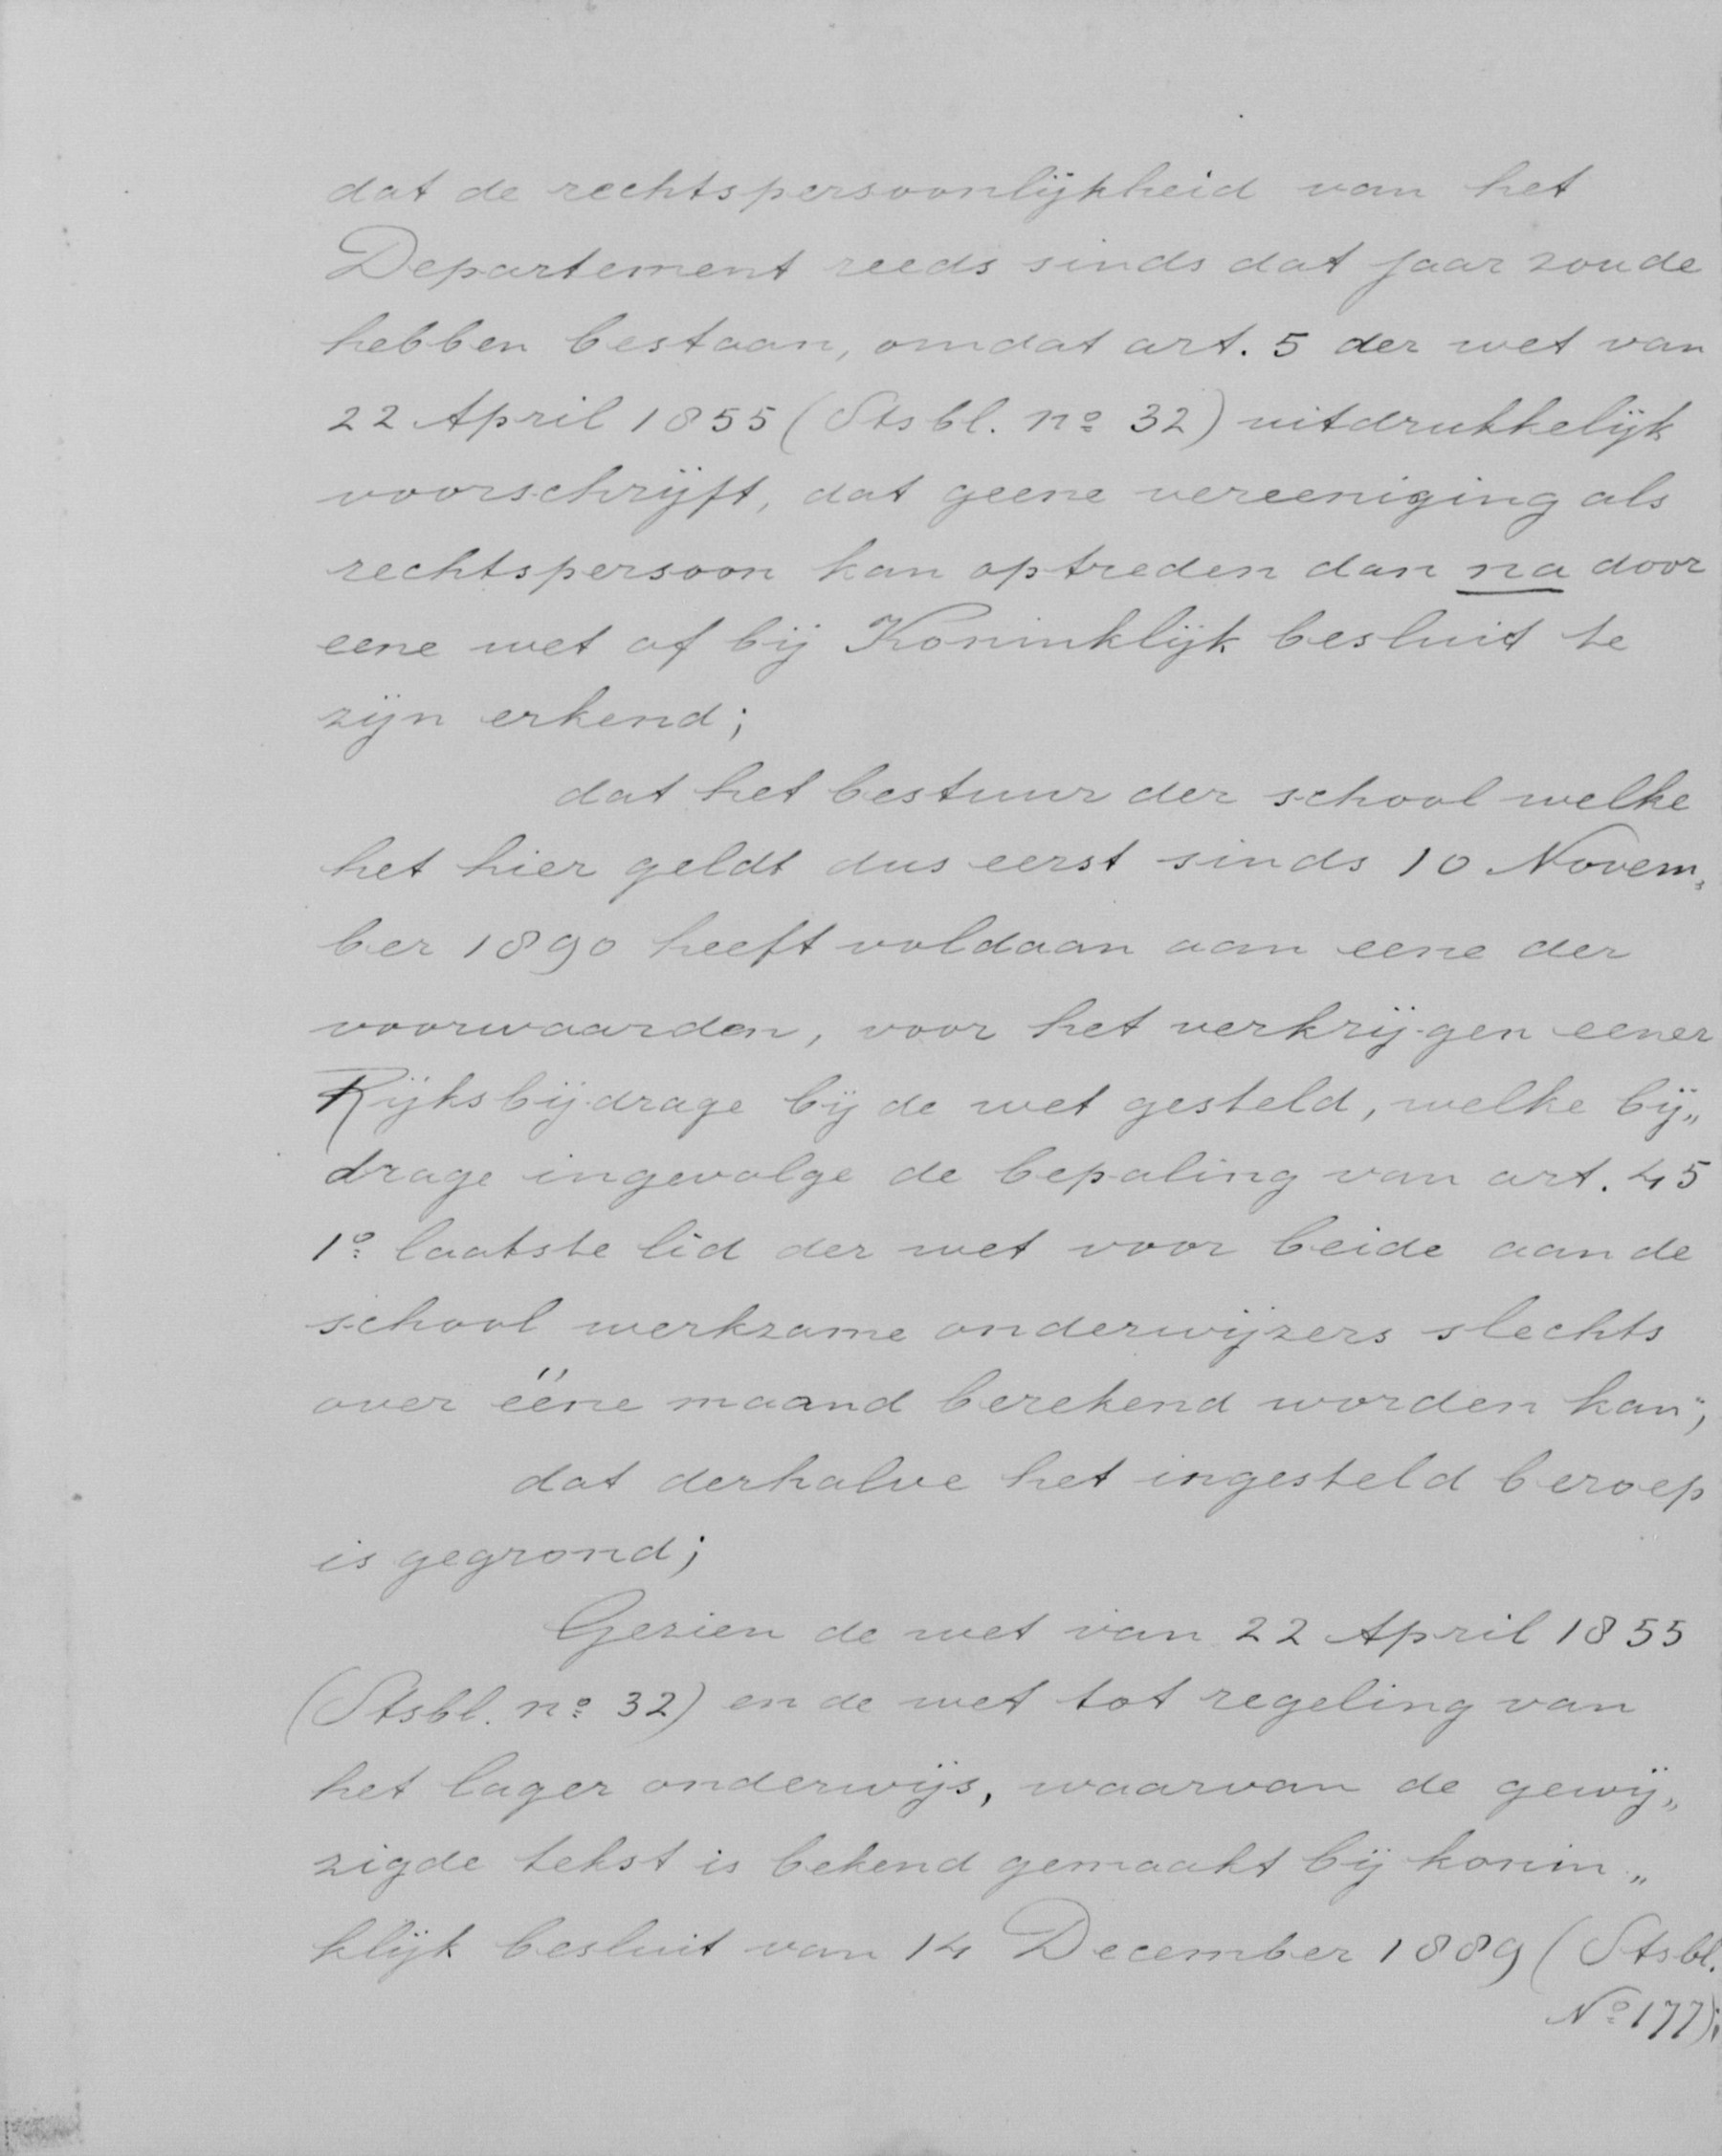 dat de rechtspersoonlijkheid van het
Departement reeds sinds dat jaar zoude
hebben bestaan, omdat art. 5 der wet van
22 April 1855 (Stsbl. no 32) uitdrukkelijk
voorschrijft, dat geene vereeniging als
rechtspersoon kan optreden dan na door
eene wet of bij Koninklijk besluit te
zijn erkend;
dat het bestuur der school welke
het hier geldt dus eerst sinds 10 Novem„
ber 1890 heeft voldaan aan eene der
voorwaarden, voor het verkrijgen eener
Rijksbijdrage bij de wet gesteld, welke bij„
drage ingevolge de bepaling van art. 45
1o laatste lid der wet voor beide aan de
school werkzame onderwijzers slechts
over ééne maand berekend worden kan";
dat derhalve het ingesteld beroep
is gegrond;
Gezien de wet van 22 April 1855
(Stsbl. no 32) en de wet tot regeling van
het lager onderwijs, waarvan de gewij„
zigde tekst is bekend gemaakt bij konin„
klijk besluit van 14 December 1889 (Stsbl.
No 177);